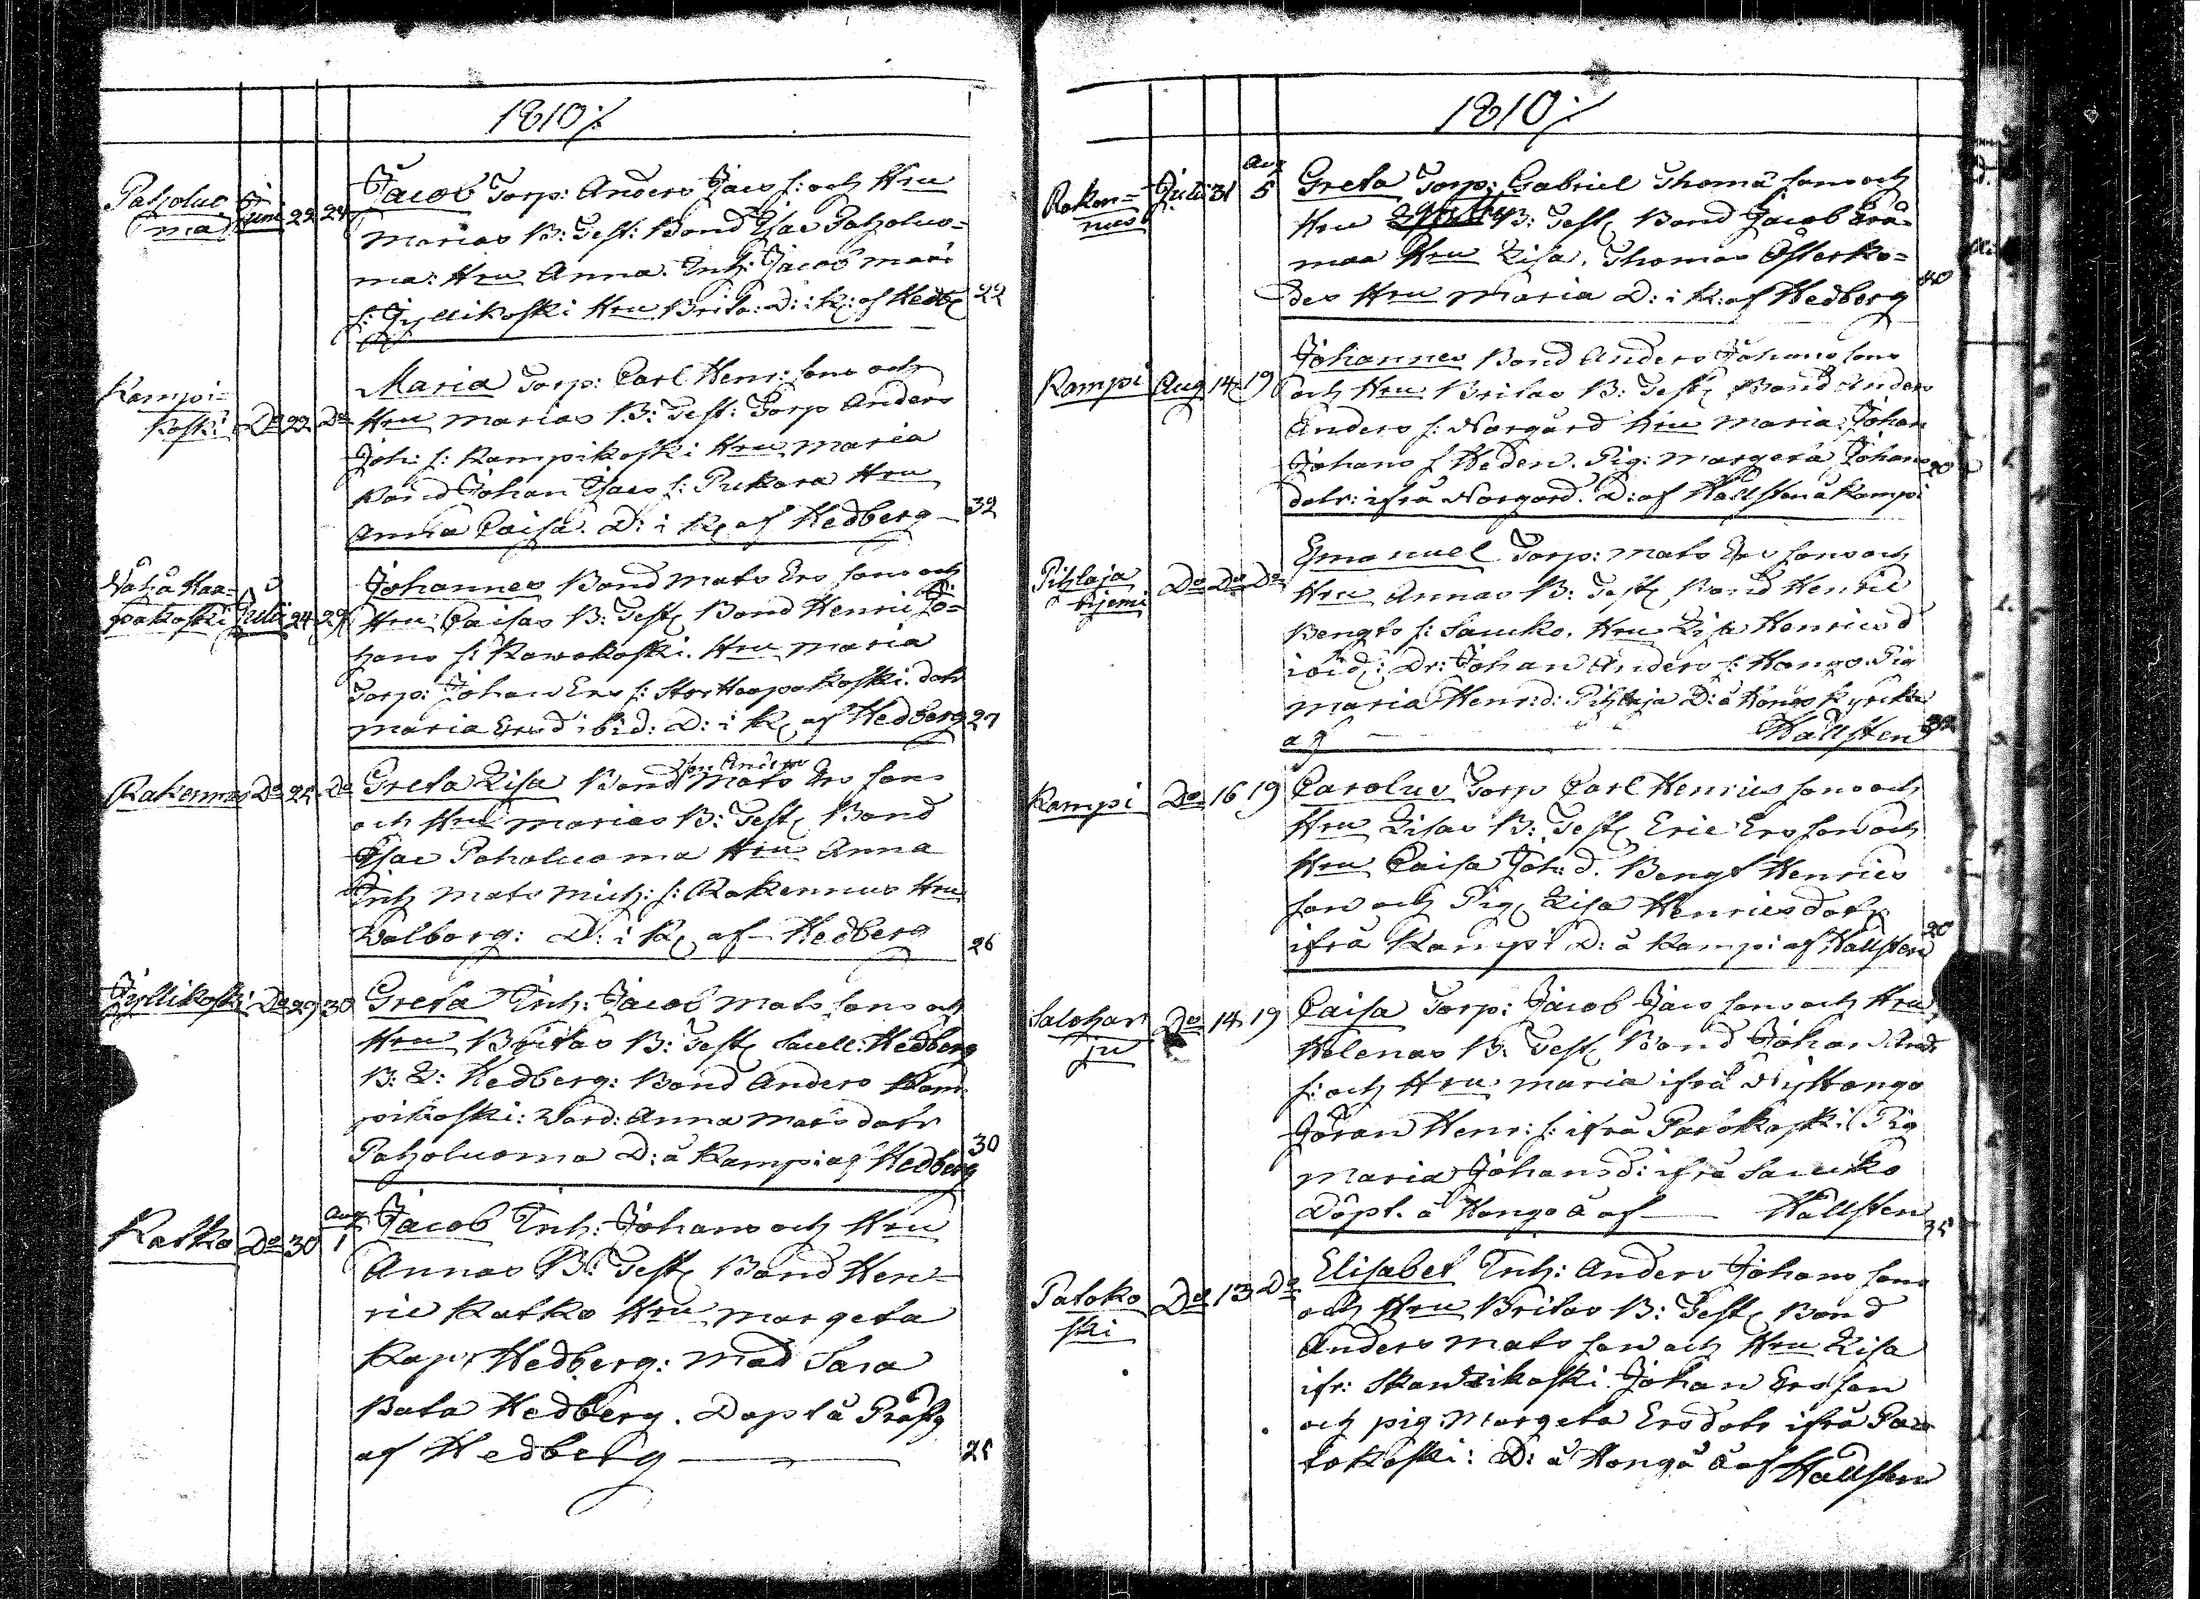 1810 ./.
Paholuo
ma
Juni 22 24
Jacob Torp: Anders Jacs s: och Hru
Marias B: Test: Bond Esac Paholuo=
ma: Hru Anna. Inh: Jacob Mats
s: Jyllikoski Hru Brita: D: i K: af Hedb
22
Kampi=
koski
Do 22 Do
Maria Torp: Carl Henr: sons och
Hru Marias B: Test: Torp Anders
Joh: s: Kampikoski Hru Maria
Bond Johan Esacs s: Pukara Hru
Anna Caisa. D: i K af Hedberg
32
Wähä Haa=
pakoski
Juli 24 29
Johannes Bond Mats Ers sons och
Hru Caisas B: Test Bond Henric Jo=
hans s: Kawokoski. Hru Maria
Torp: Johan Ers s: Stor Haapakoski. dotr
Maria Ersd ibid: D: i K af Hedberg
27
Rakennus Do 25 Do
son Anders
Greta Lisa Bond Mats Ers sons
och Hru Marias B: Test Bond
Esac Poholuoma Hru Anna
Inh Mats Mich: s: Rakennus Hru
Walborg: D: i K af Hedberg
26
Jyllikoski Do 29 30
Greta Inh: Jacob Mats sons och
Hru Britas B: Test Sacell: Hedberg
B: L: Hedberg: Bond Anders Kam
pikoski: Anna Mats dotr
Paholuoma D: å Kampi af Hedberg
30
Katko Do 30 Aug 1
Jacob Inh: Johans och Hru
Annas B: Test Bond Hen=
ric Katko Hru Margeta
Kapr Hedberg: Mad Sara
Beata Hedberg. Döpt å Prästg
af Hedberg
25
1810 ./.
Raken=
nus
Juli 31 Aug 5
Greta Torp: Gabriel Thomæ sons och
Hru B: Test Bond Jacob
maa Hru Lisa. Thomas Östersko=
des Hru Maria D: i K: af Hedberg
40
Kampi Aug 14 19
Johannes Bond Anders Johans sons
och Hru Britas B: Test Bond Anders
Anders s: Norgård Hru Maria: Johan
Johans s Heden. Pig: Margeta Johans
dotr: ifrå Norgård. D: af Hällsten å Kampi
Pihlaja
Do Do Do
Emanuel Torp: Mats Ers sons och
Hru Annas B: Test Bond Henric
Bengts s: Saucko. Hru Lisa Henricsd
ibid: Dr: Johan Anders s: Hongo. Pig
Maria Henr: d: Pihlaja D: å Kyrcka
af Hällsten
Kampi Do 16 19
Carolus Torp Carl Henrics sons och
Hru Lisas B: Test Eric Ers son och
Hru Caisa Joh: d. Bengt Henrics
son och Pig Lisa Henricsdotr
ifrå Kampi D: å Kampi af Hällsten
20
Salohar
ju
Do 14 19
Caisa Torp: Jacob Jacs sons och Hru
Helenas B: Test Bond Johan And
s: och Hru Maria ifrå Ny Hongo
Jöran Henr: s: ifrå Patokoski Pig
Maria Johansd: ifrå Saucko
Döpt. å Hongo å af Hällsten
35
Patoko
ski
Do 13 Do
Elisabet Inh: Anders Johans sons
och Hru Britas B: Test Bond
Anders Mats son och Hru Lisa
ifr: Skantzikoski Johan Ers son
och pig Margeta Ersdotr ifrå Pa
tokoski: D: å Hongo å af Hällsten